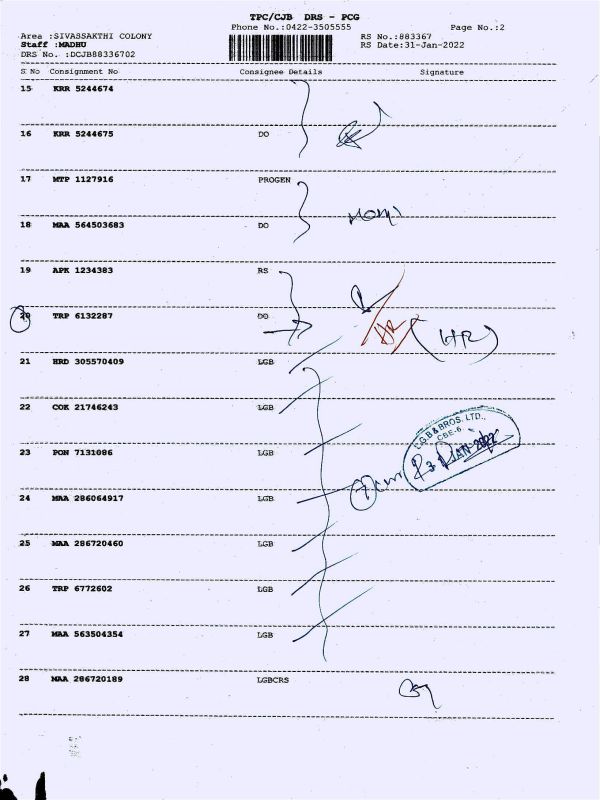 TPC/CJB DRS - PCG
Phone No.:0422-3505555
Page No.:2
Area :SIVASSAKTHI COLONY
RS No.:883367
Staff :MADHU
RS Date:31-Jan-2022
DRS No. :DCJB88336702
S No Consignment No Consignee Details Signature
15 KRR 5244674
16 KRR 5244675 DO
17 MTP 1127916 PROGEN
18 MAA 564503683 DO
19 APK 1234383 RS
20 TRP 6132287 DO
21 HRD 305570409 LGB
22 COK 21746243 LGB
L.G.B & BROS. LTD.,
CBE-6
23 PON 7131086 LGB
24 MAA 286064917 LGB
25 MAA 286720460 LGB
26 TRP 6772602 LGB
27 MAA 563504354 LGB
28 MAA 286720189 LGBCRS